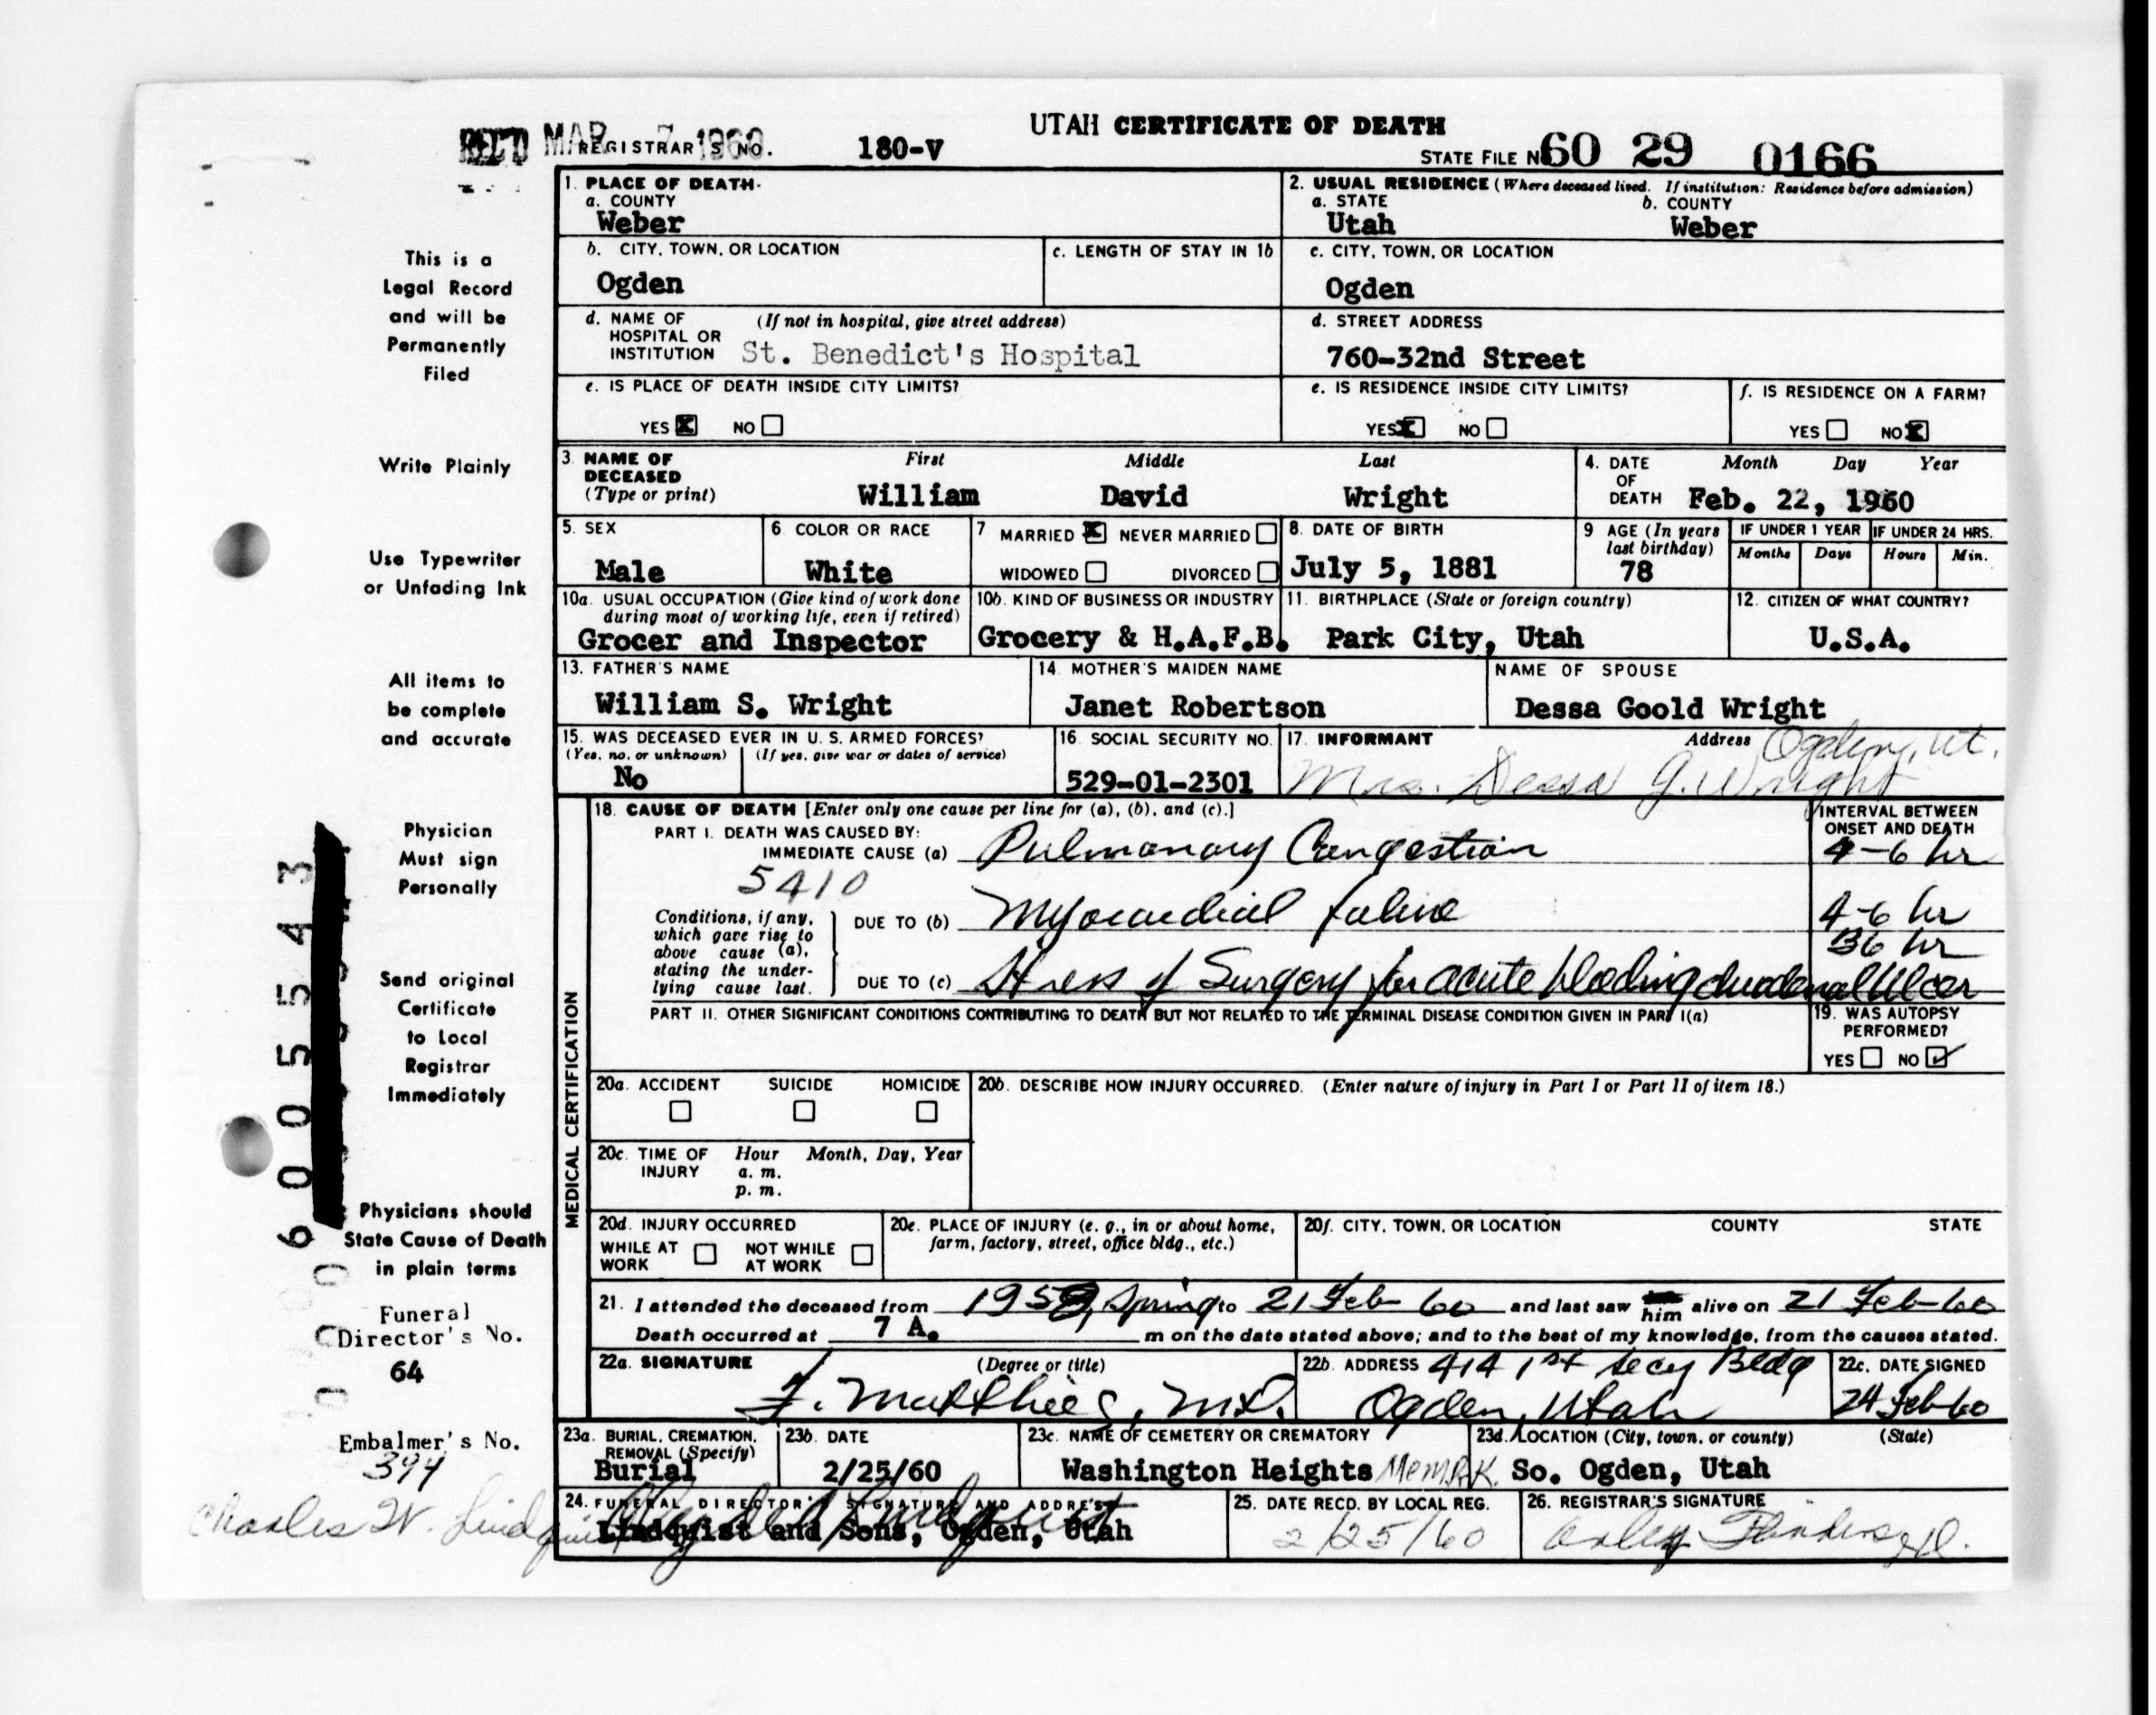 UTAH CERTIFICATE OF DEATH
REC'D MAR 7 1960
REGISTRAR'S NO. 180-V
STATE FILE NO 60 29 0166
1. PLACE OF DEATH
a. COUNTY
Weber
2. USUAL RESIDENCE (Where deceased lived. If institution: Residence before admission)
a. STATE b. COUNTY
Utah Weber
b. CITY, TOWN, OR LOCATION
Ogden
c. LENGTH OF STAY IN 1b
c. CITY, TOWN, OR LOCATION
Ogden
d. NAME OF HOSPITAL OR INSTITUTION (If not in hospital, give street address)
St. Benedict's Hospital
d. STREET ADDRESS
760-32nd Street
e. IS PLACE OF DEATH INSIDE CITY LIMITS?
YES X NO
e. IS RESIDENCE INSIDE CITY LIMITS?
YES X NO
f. IS RESIDENCE ON A FARM?
YES NO X
3. NAME OF DECEASED (Type or print)
First Middle Last
William David Wright
4. DATE OF DEATH Month Day Year
Feb. 22, 1960
5. SEX
Male
6. COLOR OR RACE
White
7 MARRIED X NEVER MARRIED
WIDOWED DIVORCED
8. DATE OF BIRTH
July 5, 1881
9 AGE (In years last birthday)
78
IF UNDER 1 YEAR
Months Days
IF UNDER 24 HRS.
Hours Min.
10a. USUAL OCCUPATION (Give kind of work done during most of working life, even if retired)
Grocer and Inspector
10b. KIND OF BUSINESS OR INDUSTRY
Grocery & H.A.F.B.
11. BIRTHPLACE (State or foreign country)
Park City, Utah
12. CITIZEN OF WHAT COUNTRY?
U.S.A.
13. FATHER'S NAME
William S. Wright
14. MOTHER'S MAIDEN NAME
Janet Robertson
NAME OF SPOUSE
Dessa Goold Wright
15. WAS DECEASED EVER IN U. S. ARMED FORCES?
(Yes, no, or unknown) (If yes, give war or dates of service)
No
16. SOCIAL SECURITY NO.
529-01-2301
17. INFORMANT Address Ogden, Ut.
Mrs. Dessa G. Wright
MEDICAL CERTIFICATION
18. CAUSE OF DEATH [Enter only one cause per line for (a), (b), and (c).]
INTERVAL BETWEEN ONSET AND DEATH
PART I. DEATH WAS CAUSED BY:
IMMEDIATE CAUSE (a) Pulmonary Congestion 4-6 hr
5410
Conditions, if any, which gave rise to above cause (a), stating the underlying cause last.
DUE TO (b) Myocardial failure 4-6 hr
36 hr
DUE TO (c) Stress of Surgery for acute bleeding duodenal Ulcer
PART II. OTHER SIGNIFICANT CONDITIONS CONTRIBUTING TO DEATH BUT NOT RELATED TO THE TERMINAL DISEASE CONDITION GIVEN IN PART I(a)
19. WAS AUTOPSY PERFORMED?
YES NO ✓
20a. ACCIDENT SUICIDE HOMICIDE
20b. DESCRIBE HOW INJURY OCCURRED. (Enter nature of injury in Part I or Part II of item 18.)
20c. TIME OF INJURY Hour Month, Day, Year
a. m.
p. m.
20d. INJURY OCCURRED
WHILE AT WORK NOT WHILE AT WORK
20e. PLACE OF INJURY (e. g., in or about home, farm, factory, street, office bldg., etc.)
20f. CITY, TOWN, OR LOCATION COUNTY STATE
21. I attended the deceased from Spring to 21 Feb 60 and last saw him alive on 21 Feb-60
Death occurred at 7 A. m on the date stated above; and to the best of my knowledge, from the causes stated.
22a. SIGNATURE (Degree or title)
F. Matthies, M.D.
22b. ADDRESS 414 1st Secy Bldg
Ogden, Utah
22c. DATE SIGNED
24 Feb 60
23a. BURIAL, CREMATION, REMOVAL (Specify)
Burial
23b. DATE
2/25/60
23c. NAME OF CEMETERY OR CREMATORY
Washington Heights Mem. P.K.
23d. LOCATION (City, town, or county) (State)
So. Ogden, Utah
24. FUNERAL DIRECTOR'S SIGNATURE AND ADDRESS
Lindquist and Sons, Ogden, Utah
25. DATE RECD. BY LOCAL REG.
2/25/60
26. REGISTRAR'S SIGNATURE
This is a
Legal Record
and will be
Permanently
Filed
Write Plainly
Use Typewriter
or Unfading Ink
All items to
be complete
and accurate
Physician
Must sign
Personally
Send original
Certificate
to Local
Registrar
Immediately
Physicians should
State Cause of Death
in plain terms
Funeral
Director's No.
64
Embalmer's No.
394
Charles W. Lindquist
6005543